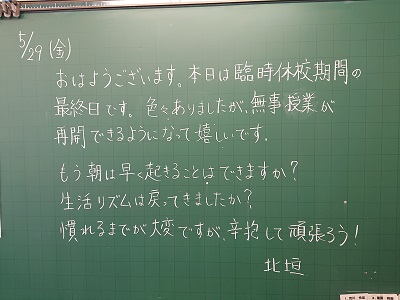 5/29(金)
おはようございます。本日は臨時休校期間の
最終日です。色々ありましたが、無事授業が
再開できるようになって嬉しいです。
もう朝は早く起きることはできますか?
生活リズムは戻ってきましたか?
慣れるまでが大変ですが、辛抱して頑張ろう!
北垣